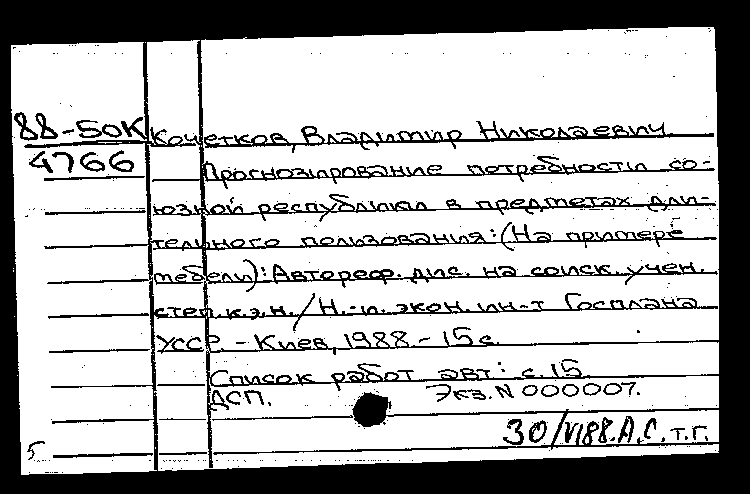 88-50К Кочетков, Владимир Николаевич.
4766 Прогнозирование потребности со-
юзной республики в предметах дли-
тельного пользования: (На примере
мебели): Автореф. дис. на соиск. учен.
степ. к.э.н. / Н.-и. экон. ин-т Госплана
УССР - Киев, 1988. - 15 с.
Список работ авт.: с. 15.
ДСП. Экз. N 000007.
30/VI88. А.С. т.г.
5